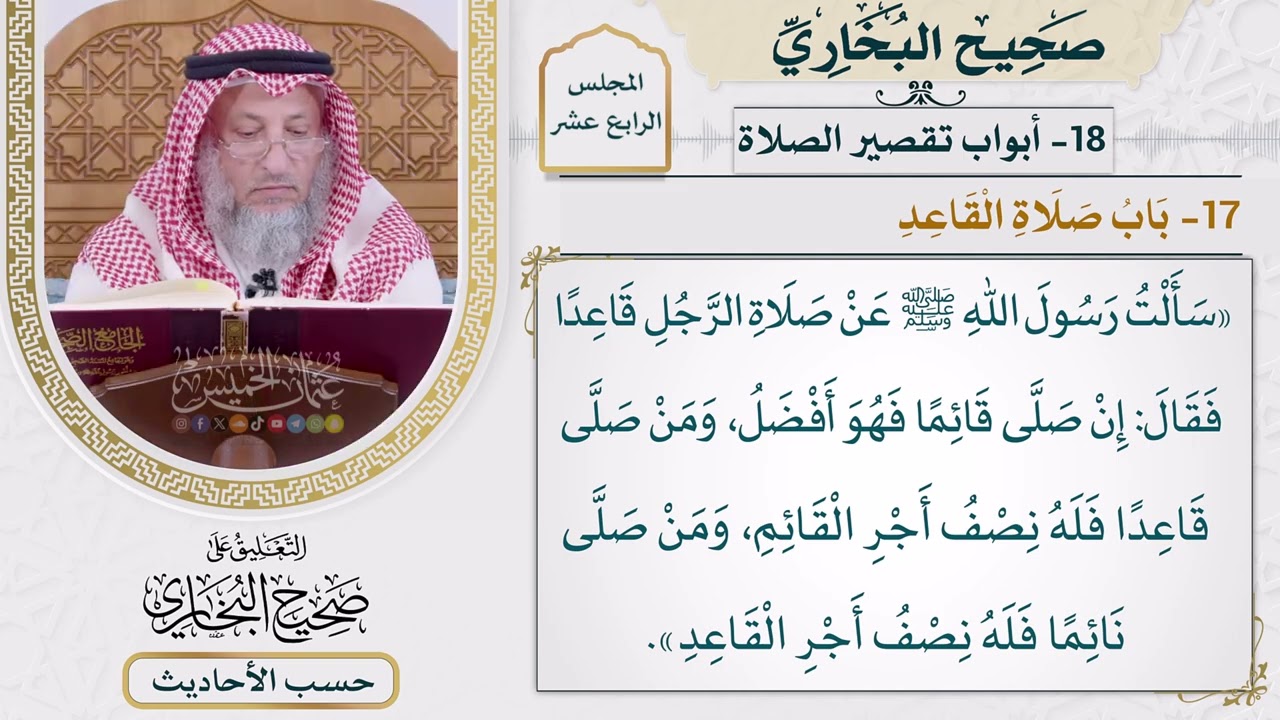 صَحِيح البُخَارِيِّ
المجلس
الرابع عشر
18- أبواب تقصير الصلاة
17- بَابُ صَلَاةِ الْقَاعِدِ
«سَأَلْتُ رَسُولَ اللهِ ﷺ عَنْ صَلَاةِ الرَّجُلِ قَاعِدًا
فَقَالَ: إِنْ صَلَّى قَائِمًا فَهُوَ أَفْضَلُ، وَمَنْ صَلَّى
قَاعِدًا فَلَهُ نِصْفُ أَجْرِ الْقَائِمِ، وَمَنْ صَلَّى
نَائِمًا فَلَهُ نِصْفُ أَجْرِ الْقَاعِدِ».
الجامع
عُثمان الخميس
التَّعْلِيقُ عَلَى
صَحِيح البُخَارِي
حسب الأحاديث